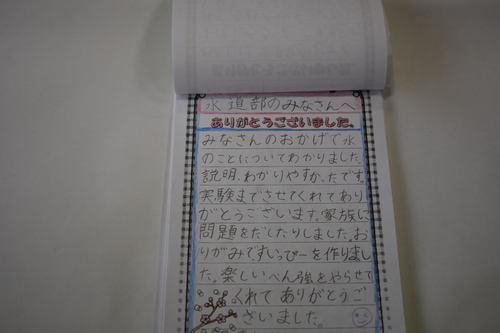 水道部のみなさんへ
ありがとうございました。
みなさんのおかげで水
のことについてわかりました。
説明、わかりやすかったです。
実験までさせてくれてあり
がとうございます。家族に
問題をだしたりしました。お
りがみで、すいっぴーを作りまし
た。楽しいべん強をやらせて
くれてありがとうご
ざいました。